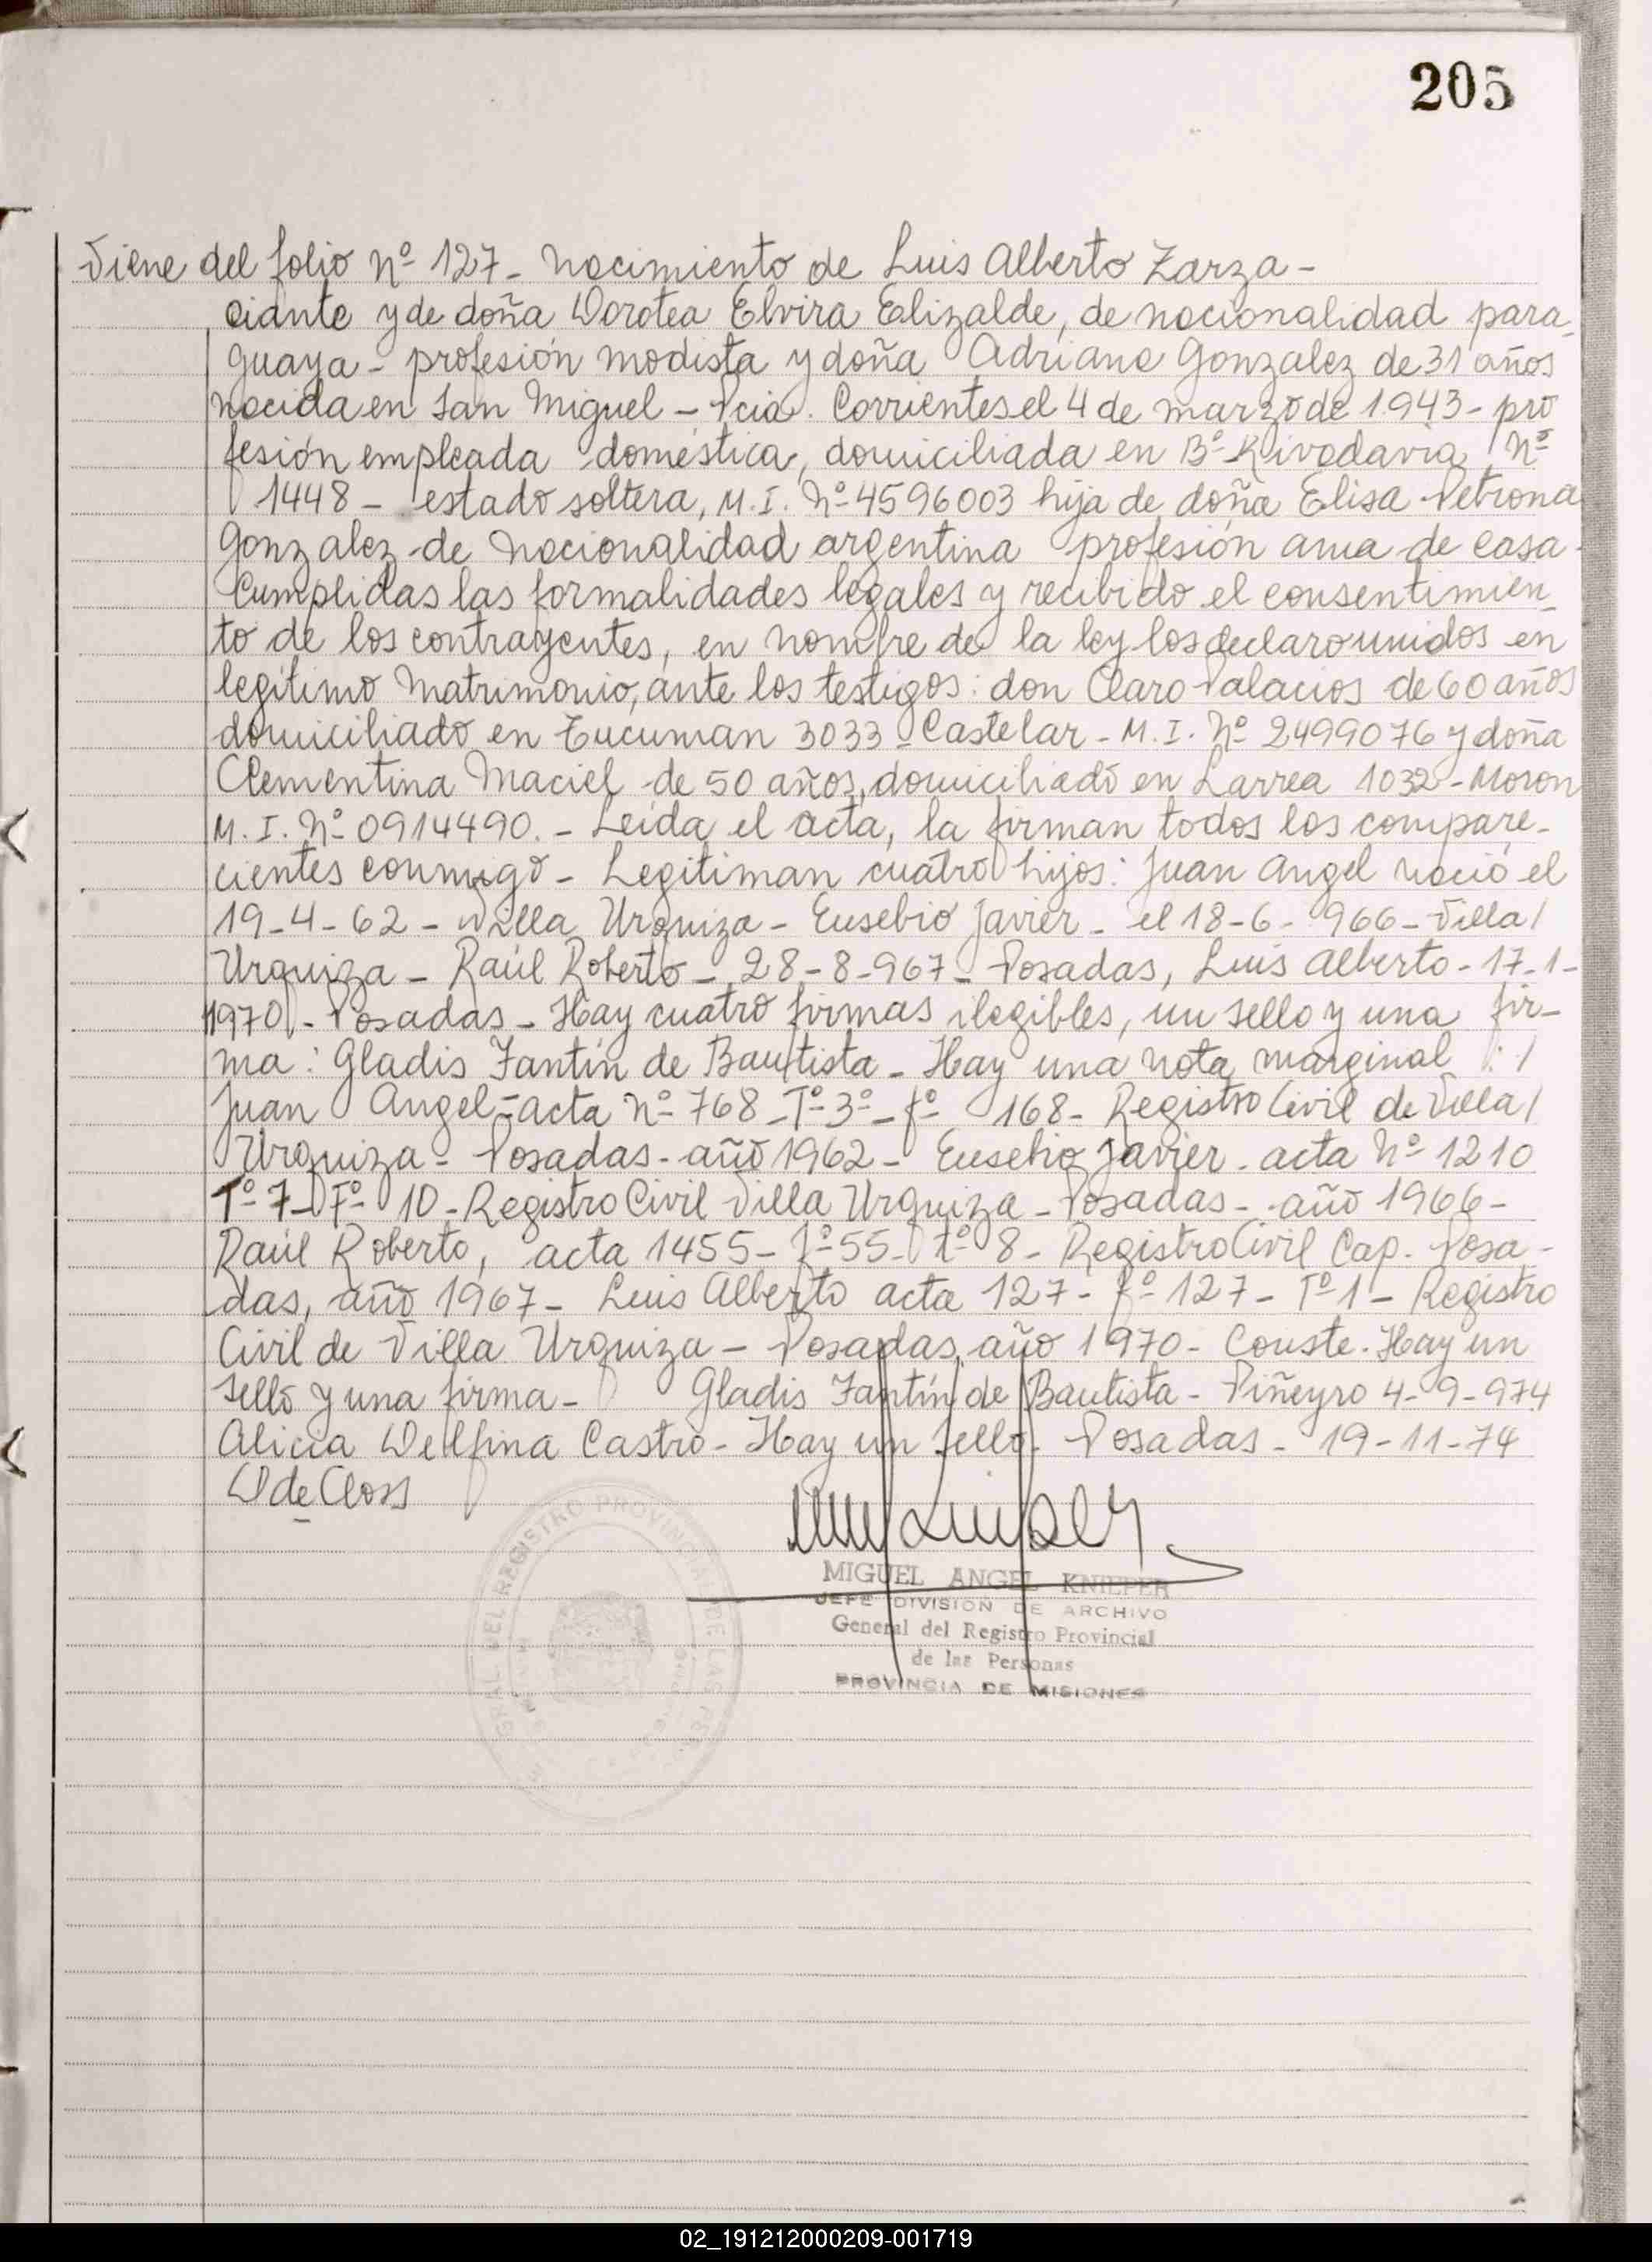 205
Viene del folio Nº 127 - Nacimiento de Luis Alberto Zarza -
ciante y de doña Dorotea Elvira Elizalde, de nacionalidad para_
guaya - profesión modista y doña Adriana Gonzalez de 31 años
nacida en San Miguel - Pcia. Corrientes el 4 de marzo de 1.943 - pro
fesión empleada doméstica, domiciliada en Bº Rivadavia Nº
1448 - estado soltera, M.I. Nº 4596003 hija de doña Elisa Petrona
Gonzalez de nacionalidad argentina profesión ama de casa -
Cumplidas las formalidades legales y recibido el consentimien_
to de los contrayentes, en nombre de la ley los declaro unidos en
legítimo Matrimonio, ante los testigos: don Claro Palacios de 60 años
domiciliado en Tucuman 3033 - Castelar - M.I. Nº 2499076 y doña
Clementina Maciel de 50 años, domiciliado en Larrea 1032 - Moron
M.I. Nº 0914490. - Leída el acta, la firman todos los compare_
cientes conmigo - Legitiman cuatro hijos: Juan Angel nació el
19-4-62 - Villa Urquiza - Eusebio Javier - el 18-6-966 - Villa/
Urquiza - Raúl Roberto - 28-8-967 - Posadas, Luis Alberto - 17-1-
1970 - Posadas - Hay cuatro firmas ilegibles, un sello y una fir-
ma: Gladis Fantín de Bautista - Hay una nota marginal :/
Juan Angel - acta Nº 768 - Tº 3º - fº 168 - Registro Civil de Villa/
Urquiza - Posadas - año 1962 - Eusebio Javier - acta Nº 1210
Tº 7 - Fº 10 - Registro Civil Villa Urquiza - Posadas - año 1966 -
Raúl Roberto, acta 1455 - fº 55 - tº 8 - Registro Civil Cap. Posa-
das, año 1967 - Luis Alberto acta 127 - fº 127 - Tº 1 - Registro
Civil de Villa Urquiza - Posadas, año 1970 - Conste. Hay un
sello y una firma - Gladis Fantín de Bautista - Piñeyro 4-9-974
Alicia Delfina Castro - Hay un sello. Posadas - 19-11-74
D de Closs
MIGUEL ANGEL KNIEPER
JEFE DIVISION DE ARCHIVO
General del Registro Provincial
de las Personas
PROVINCIA DE MISIONES
GRAL DEL REGISTRO PROVINCIAL DE LAS PER
02_191212000209-001719